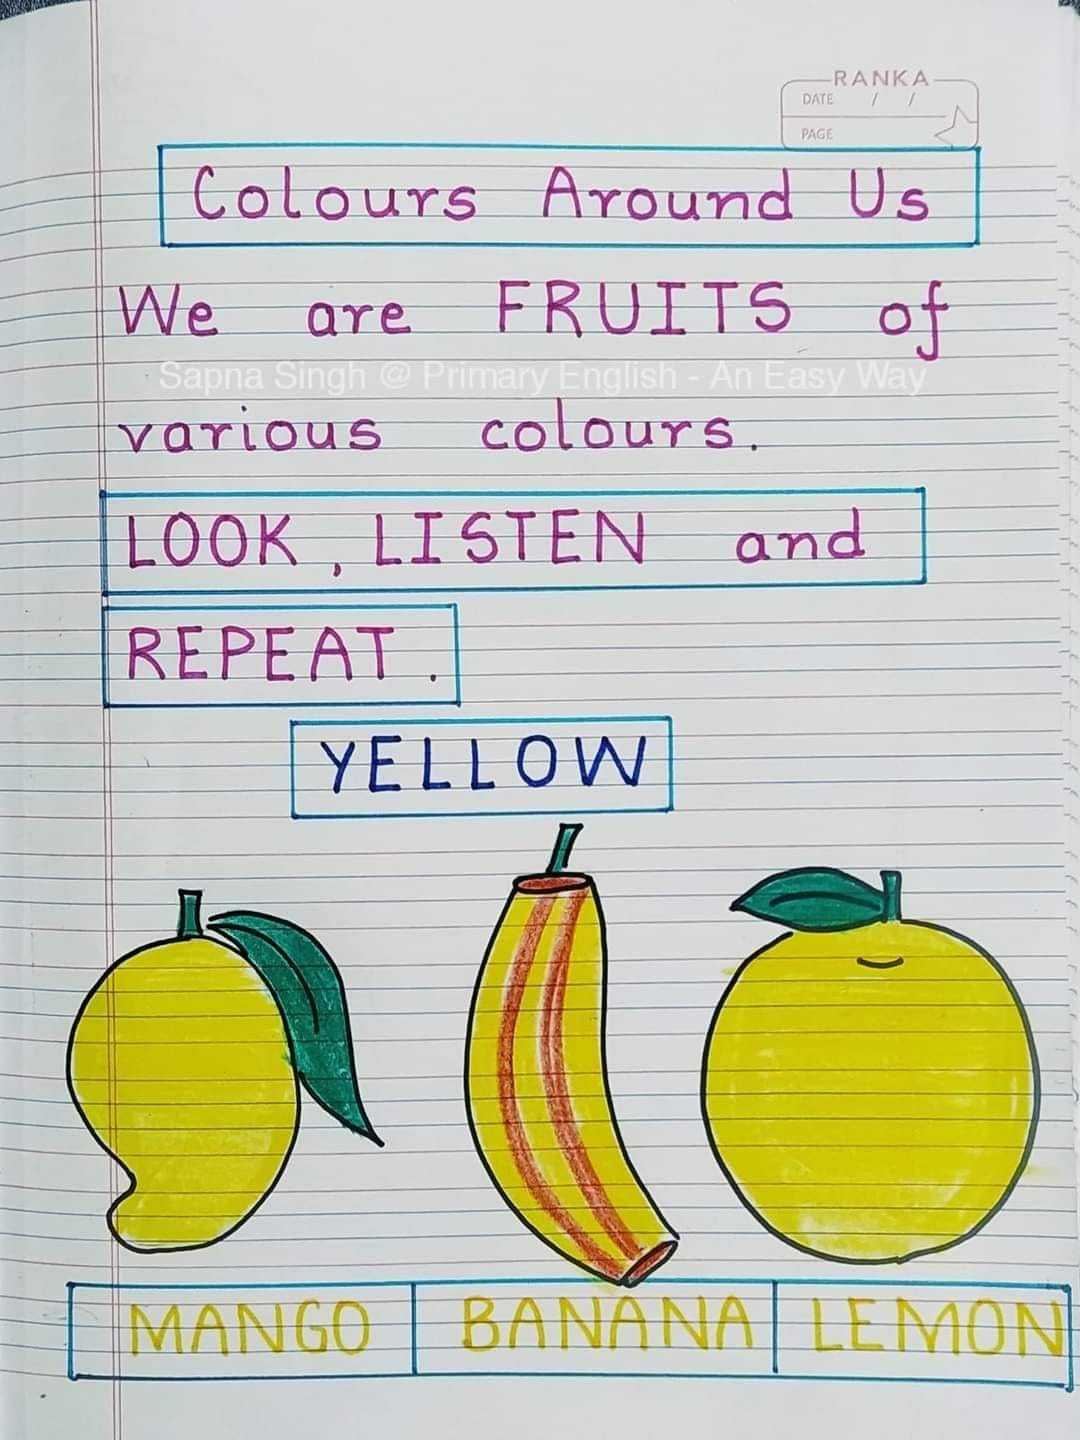 RANKA
DATE / /
PAGE
Colours Around Us
We are FRUITS of
Sapna Singh @ Primary English - An Easy Way
various colours.
LOOK, LISTEN and
REPEAT.
YELLOW
MANGO BANANA LEMON